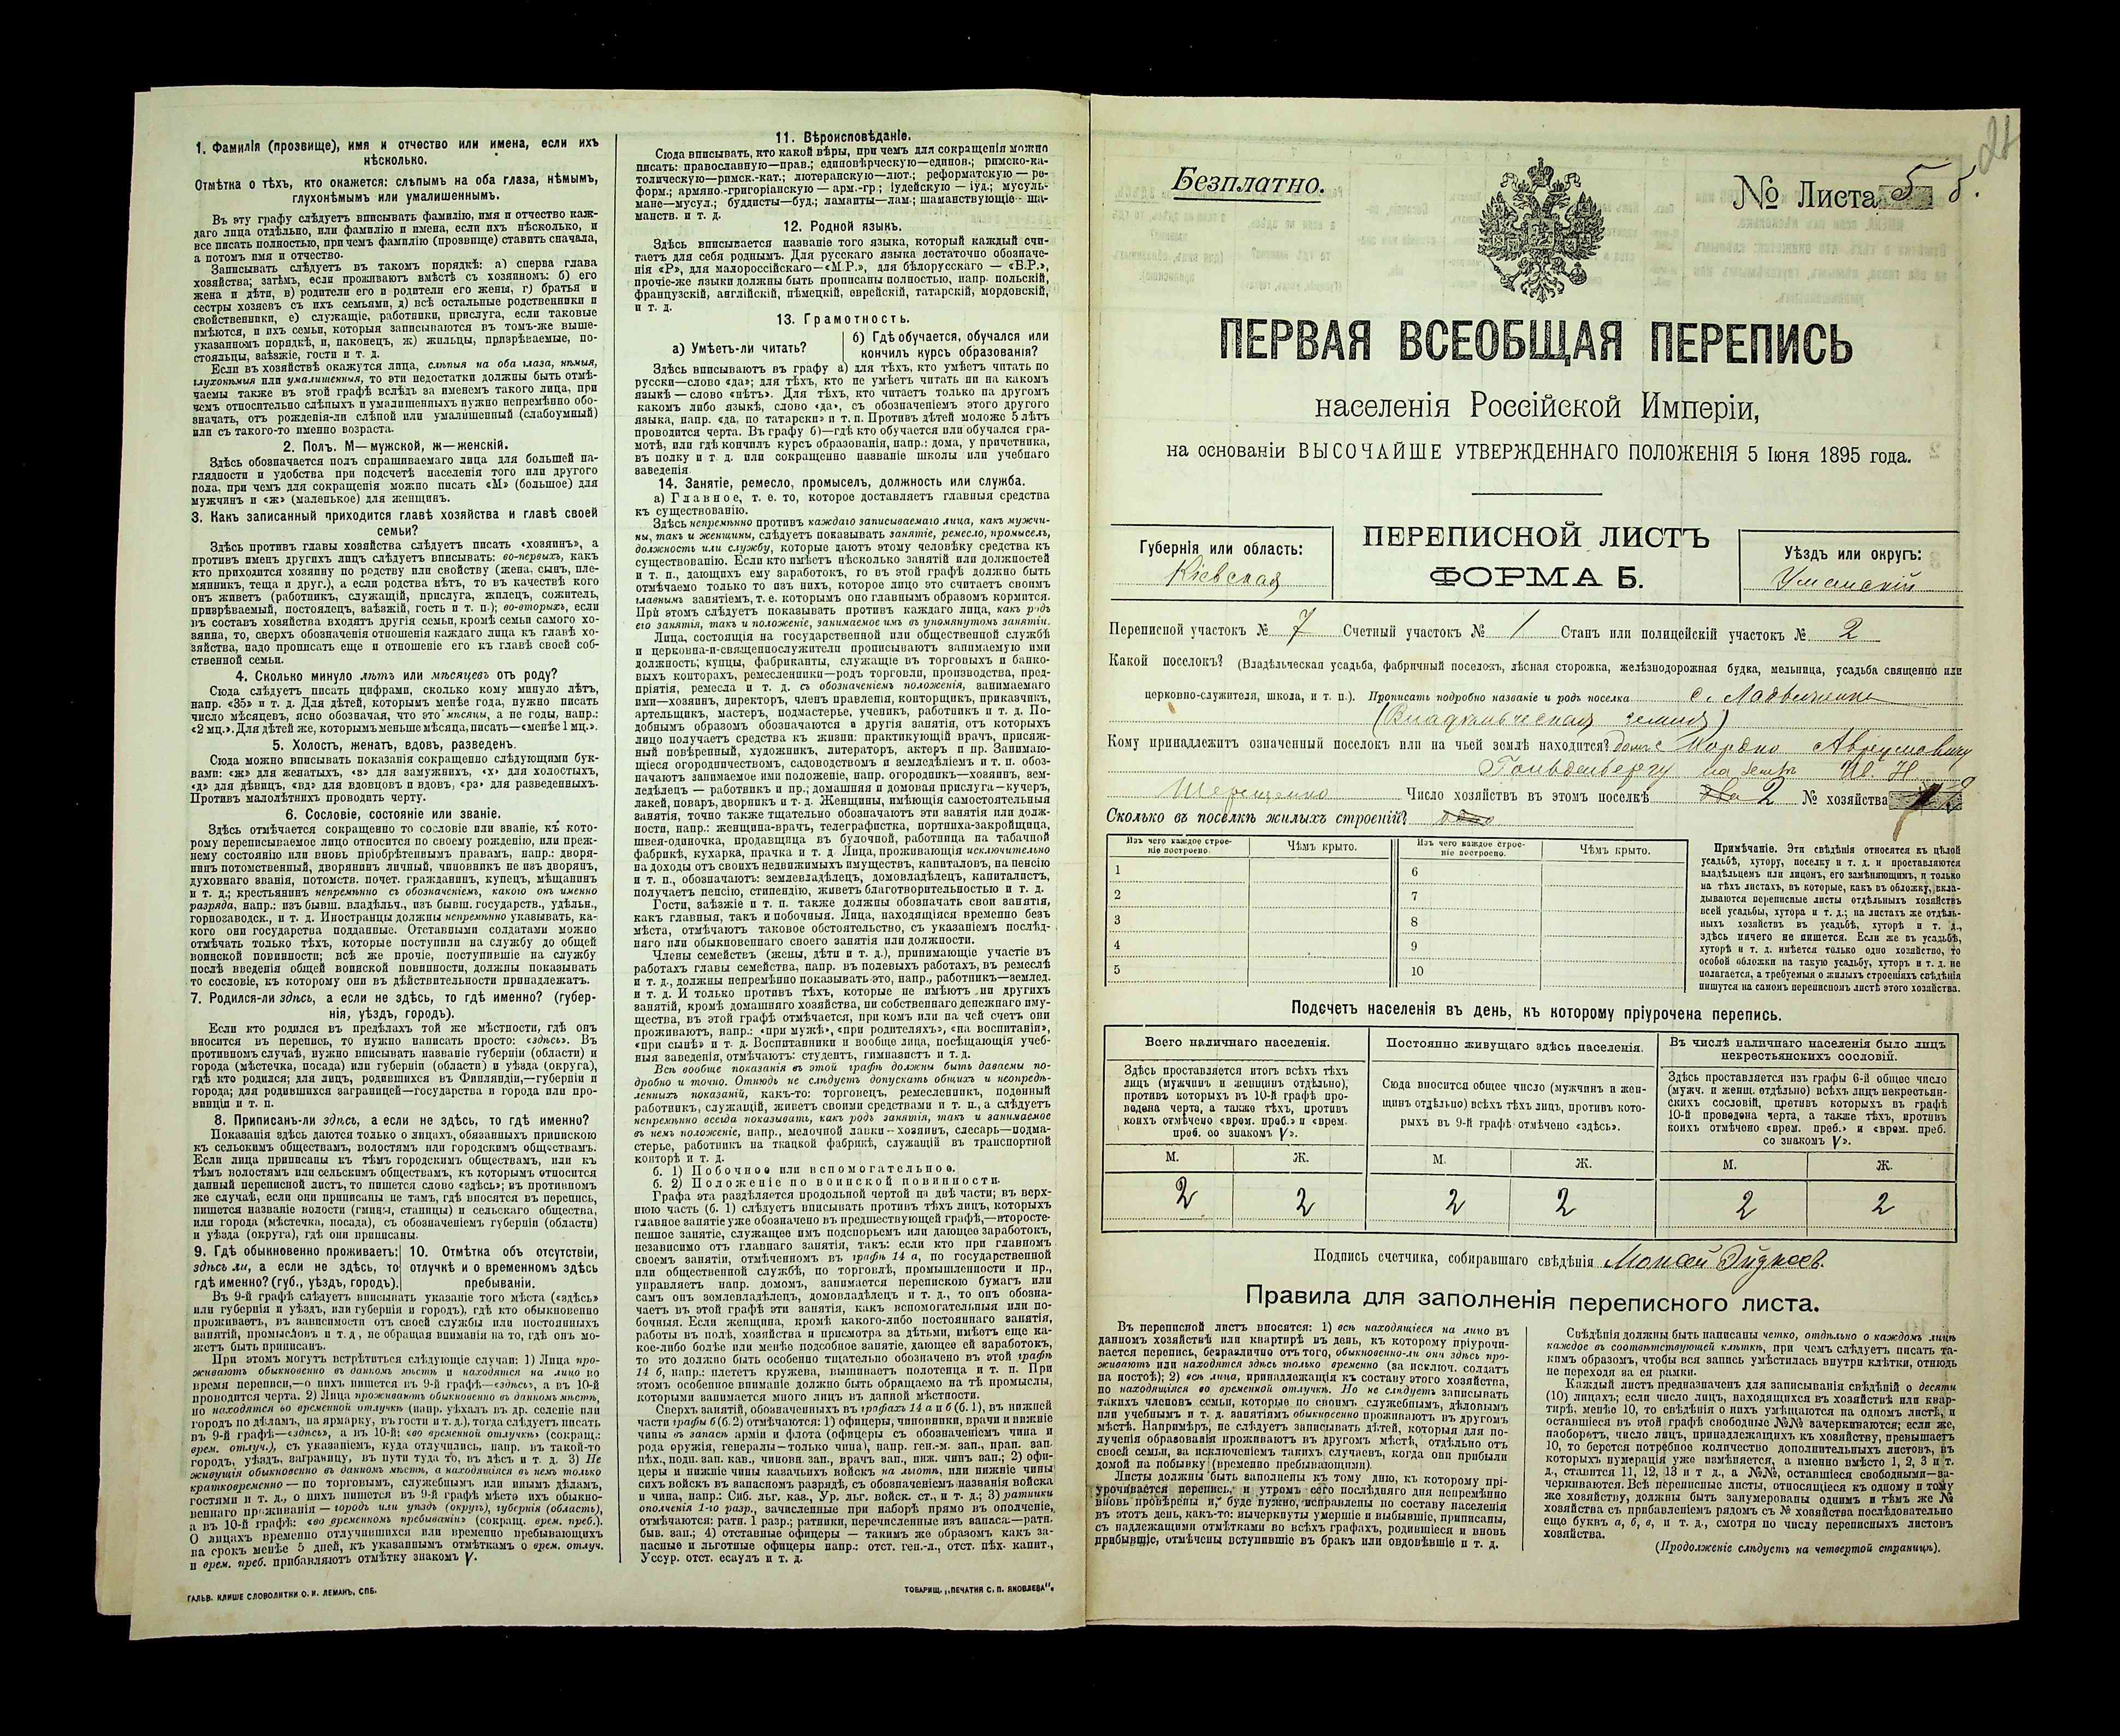 1. Фамилія (прозвище), имя и отчество или имена, если ихъ
нѣсколько.
Отмѣтка о тѣхъ, кто окажется: слѣпымъ на оба глаза, нѣмымъ,
глухонѣмымъ или умалишеннымъ.
Въ эту графу слѣдуетъ вписывать фамилію, имя и отчество каж-
даго лица отдѣльно, или фамилію и имена, если ихъ нѣсколько, и
все писать полностью, при чемъ фамилію (прозвище) ставить сначала,
а потомъ имя и отчество.
Записывать слѣдуетъ въ такомъ порядкѣ: а) сперва глава
хозяйства; затѣмъ, если проживаютъ вмѣстѣ съ хозяиномъ: б) его
жена и дѣти, в) родители его и родители его жены, г) братья и
сестры хозяевъ съ ихъ семьями, д) всѣ остальные родственники и
свойственники, е) служащіе, работники, прислуга, если таковые
имѣются, и ихъ семьи, которыя записываются въ томъ-же выше-
указанномъ порядкѣ, и, наконецъ, ж) жильцы, призрѣваемые, по-
стояльцы, заѣзжіе, гости и т. д.
Если въ хозяйствѣ окажутся лица, слѣпыя на оба глаза, нѣмыя,
глухонѣмыя или умалишенныя, то эти недостатки должны быть отмѣ-
чаемы также въ этой графѣ вслѣдъ за именемъ такого лица, при
чемъ относительно слѣпыхъ и умалишенныхъ нужно непремѣнно обо-
значать, отъ рожденія-ли слѣпой или умалишенный (слабоумный)
или съ такого-то именно возраста.
2. Полъ. М—мужской, ж—женскій.
Здѣсь обозначается полъ спрашиваемаго лица для большей на-
глядности и удобства при подсчетѣ населенія того или другого
пола, при чемъ для сокращенія можно писать «М» (большое) для
мужчинъ и «ж» (маленькое) для женщинъ.
3. Какъ записанный приходится главѣ хозяйства и главѣ своей
семьи?
Здѣсь противъ главы хозяйства слѣдуетъ писать «хозяинъ», а
противъ именъ другихъ лицъ слѣдуетъ вписывать: во-первыхъ, какъ
кто приходится хозяину по родству или свойству (жена, сынъ, пле-
мянникъ, теща и друг.), а если родства нѣтъ, то въ качествѣ кого
онъ живетъ (работникъ, служащій, прислуга, жилецъ, сожитель,
призрѣваемый, постоялецъ, заѣзжій, гость и т. п.); во-вторыхъ, если
въ составъ хозяйства входятъ другія семьи, кромѣ семьи самого хо-
зяина, то, сверхъ обозначенія отношенія каждаго лица къ главѣ хо-
зяйства, надо прописать еще и отношеніе его къ главѣ своей соб-
ственной семьи.
4. Сколько минуло лѣтъ или мѣсяцевъ отъ роду?
Сюда слѣдуетъ писать цифрами, сколько кому минуло лѣтъ,
напр. «35» и т. д. Для дѣтей, которымъ менѣе года, нужно писать
число мѣсяцевъ, ясно обозначая, что это мѣсяцы, а не годы, напр.:
«2 мц.». Для дѣтей же, которымъ меньше мѣсяца, писать—«менѣе 1 мц.».
5. Холостъ, женатъ, вдовъ, разведенъ.
Сюда можно вписывать показанія сокращенно слѣдующими бук-
вами: «ж» для женатыхъ, «з» для замужнихъ, «х» для холостыхъ,
«д» для дѣвицъ, «вд» для вдовцовъ и вдовъ, «рз» для разведенныхъ.
Противъ малолѣтнихъ проводить черту.
6. Сословіе, состояніе или званіе.
Здѣсь отмѣчается сокращенно то сословіе или званіе, къ кото-
рому переписываемое лицо относится по своему рожденію, или преж-
нему состоянію или вновь пріобрѣтеннымъ правамъ, напр.: дворя-
нинъ потомственный, дворянинъ личный, чиновникъ не изъ дворянъ,
духовнаго званія, потомств. почет. гражданинъ, купецъ, мѣщанинъ
и т. д.; крестьянинъ непремѣнно съ обозначеніемъ, какого онъ именно
разряда, напр.: изъ бывш. владѣльч., изъ бывш. государств., удѣльн.,
горнозаводск., и т. д. Иностранцы должны непремѣнно указывать, ка-
кого они государства подданные. Отставными солдатами можно
отмѣчать только тѣхъ, которые поступили на службу до общей
воинской повинности; всѣ же прочіе, поступившіе на службу
послѣ введенія общей воинской повинности, должны показывать
то сословіе, къ которому они въ дѣйствительности принадлежатъ.
7. Родился-ли здѣсь, а если не здѣсь, то гдѣ именно? (губер-
нія, уѣздъ, городъ).
Если кто родился въ предѣлахъ той же мѣстности, гдѣ онъ
вносится въ перепись, то нужно написать просто: «здѣсь». Въ
противномъ случаѣ, нужно вписывать названіе губерніи (области) и
города (мѣстечка, посада) или губерніи (области) и уѣзда (округа),
гдѣ кто родился; для лицъ, родившихся въ Финляндіи,—губерніи и
города; для родившихся заграницей—государства и города или про-
винціи и т. п.
8. Приписанъ-ли здѣсь, а если не здѣсь, то гдѣ именно?
Показанія здѣсь даются только о лицахъ, обязанныхъ припискою
къ сельскимъ обществамъ, волостямъ или городскимъ обществамъ.
Если лица приписаны къ тѣмъ городскимъ обществамъ, или къ
тѣмъ волостямъ или сельскимъ обществамъ, къ которымъ относится
данный переписной листъ, то пишется слово «здѣсь»; въ противномъ
же случаѣ, если они приписаны не тамъ, гдѣ вносятся въ перепись,
пишется названіе волости (гмины, станицы) и сельскаго общества,
или города (мѣстечка, посада), съ обозначеніемъ губерніи (области)
и уѣзда (округа), гдѣ они приписаны.
9. Гдѣ обыкновенно проживаетъ:
здѣсь ли, а если не здѣсь, то
гдѣ именно? (губ., уѣздъ, городъ).
10. Отмѣтка объ отсутствіи,
отлучкѣ и о временномъ здѣсь
пребываніи.
Въ 9-й графѣ слѣдуетъ вписывать указаніе того мѣста («здѣсь»
или губернія и уѣздъ, или губернія и городъ), гдѣ кто обыкновенно
проживаетъ, въ зависимости отъ своей службы или постоянныхъ
занятій, промысловъ и т. д., не обращая вниманія на то, гдѣ онъ мо-
жетъ быть приписанъ.
При этомъ могутъ встрѣтиться слѣдующіе случаи: 1) Лица про-
живаютъ обыкновенно въ данномъ мѣстѣ и находятся на лицо во
время переписи,—о нихъ пишется въ 9-й графѣ—«здѣсь», а въ 10-й
проводится черта. 2) Лица проживаютъ обыкновенно въ данномъ мѣстѣ,
но находятся во временной отлучкѣ (напр. уѣхалъ въ др. селеніе или
городъ по дѣламъ, на ярмарку, въ гости и т. д.), тогда слѣдуетъ писать
въ 9-й графѣ—«здѣсь», а въ 10-й: «во временной отлучкѣ» (сокращ.:
врем. отлуч.), съ указаніемъ, куда отлучились, напр. въ такой-то
городъ, уѣздъ, заграницу, въ пути туда то, въ лѣсъ и т. д. 3) Не
живущія обыкновенно въ данномъ мѣстѣ, а находящіяся въ немъ только
кратковременно — по торговымъ, служебнымъ или инымъ дѣламъ,
гостями и т. д., о нихъ пишется въ 9-й графѣ мѣсто ихъ обыкно-
веннаго проживанія — городъ или уѣздъ (округъ), губернія (область),
а въ 10-й графѣ: «во временномъ пребываніи» (сокращ. врем. преб.).
О лицахъ временно отлучившихся или временно пребывающихъ
на срокъ менѣе 5 дней, къ указаннымъ отмѣткамъ о врем. отлуч.
и врем. преб. прибавляютъ отмѣтку знакомъ V.
ГАЛЬВ. КЛИШЕ СЛОВОЛИТНИ О. И. ЛЕМАНЪ, СПБ.
11. Вѣроисповѣданіе.
Сюда вписывать, кто какой вѣры, при чемъ для сокращенія можно
писать: православную—прав.; единовѣрческую—единов.; римско-ка-
толическую—римск.-кат.; лютеранскую—лют.; реформатскую — ре-
форм.; армяно-григоріанскую — арм.-гр.; іудейскую — іуд.; мусуль-
мане—мусул.; буддисты—буд.; ламаиты—лам.; шаманствующіе—ша-
манств. и т. д.
12. Родной языкъ.
Здѣсь вписывается названіе того языка, который каждый счи-
таетъ для себя роднымъ. Для русскаго языка достаточно обозначе-
нія «Р», для малороссійскаго—«М.Р.», для бѣлорусскаго — «Б.Р.»,
прочіе-же языки должны быть прописаны полностью, напр. польскій,
французскій, англійскій, нѣмецкій, еврейскій, татарскій, мордовскій,
и т. д.
13. Грамотность.
а) Умѣетъ-ли читать?
б) Гдѣ обучается, обучался или
кончилъ курсъ образованія?
Здѣсь вписываютъ въ графу а) для тѣхъ, кто умѣетъ читать по
русски—слово «да»; для тѣхъ, кто не умѣетъ читать ни на какомъ
языкѣ — слово «нѣтъ». Для тѣхъ, кто читаетъ только на другомъ
какомъ либо языкѣ, слово «да», съ обозначеніемъ этого другого
языка, напр. «да, по татарски» и т. п. Противъ дѣтей моложе 5 лѣтъ
проводится черта. Въ графу б)—гдѣ кто обучается или обучался гра-
мотѣ, или гдѣ кончилъ курсъ образованія, напр.: дома, у причетника,
въ полку и т. д. или сокращенно названіе школы или учебнаго
заведенія.
14. Занятіе, ремесло, промыселъ, должность или служба.
а) Главное, т. е. то, которое доставляетъ главныя средства
къ существованію.
Здѣсь непремѣнно противъ каждаго записываемаго лица, какъ мужчи-
ны, такъ и женщины, слѣдуетъ показывать занятіе, ремесло, промыселъ,
должность или службу, которые даютъ этому человѣку средства къ
существованію. Если кто имѣетъ нѣсколько занятій или должностей
и т. п., дающихъ ему заработокъ, то въ этой графѣ должно быть
отмѣчаемо только то изъ нихъ, которое лицо это считаетъ своимъ
главнымъ занятіемъ, т. е. которымъ оно главнымъ образомъ кормится.
При этомъ слѣдуетъ показывать противъ каждаго лица, какъ родъ
его занятія, такъ и положеніе, занимаемое имъ въ упомянутомъ занятіи.
Лица, состоящія на государственной или общественной службѣ
и церковно-и-священнослужители прописываютъ занимаемую ими
должность; купцы, фабриканты, служащіе въ торговыхъ и банко-
выхъ конторахъ, ремесленники—родъ торговли, производства, пред-
пріятія, ремесла и т. д. съ обозначеніемъ положенія, занимаемаго
ими—хозяинъ, директоръ, членъ правленія, конторщикъ, приказчикъ,
артельщикъ, мастеръ, подмастерье, ученикъ, работникъ и т. д. По-
добнымъ образомъ обозначаются и другія занятія, отъ которыхъ
лицо получаетъ средства къ жизни: практикующій врачъ, присяж-
ный повѣренный, художникъ, литераторъ, актеръ и пр. Занимаю-
щіеся огородничествомъ, садоводствомъ и земледѣліемъ и т. п. обоз-
начаютъ занимаемое ими положеніе, напр. огородникъ—хозяинъ, зем-
ледѣлецъ — работникъ и пр.; домашняя и домовая прислуга—кучеръ,
лакей, поваръ, дворникъ и т. д. Женщины, имѣющія самостоятельныя
занятія, точно также тщательно обозначаютъ эти занятія или долж-
ности, напр.: женщина-врачъ, телеграфистка, портниха-закройщица,
швея-одиночка, продавщица въ булочной, работница на табачной
фабрикѣ, кухарка, прачка и т. д. Лица, проживающія исключительно
на доходы отъ своихъ недвижимыхъ имуществъ, капиталовъ, на пенсію
и т. п., обозначаютъ: землевладѣлецъ, домовладѣлецъ, капиталистъ,
получаетъ пенсію, стипендію, живетъ благотворительностью и т. д.
Гости, заѣзжіе и т. п. также должны обозначать свои занятія,
какъ главныя, такъ и побочныя. Лица, находящіяся временно безъ
мѣста, отмѣчаютъ таковое обстоятельство, съ указаніемъ послѣд-
няго или обыкновеннаго своего занятія или должности.
Члены семействъ (жены, дѣти и т. д.), принимающіе участіе въ
работахъ главы семейства, напр. въ полевыхъ работахъ, въ ремеслѣ
и т. д., должны непремѣнно показывать это, напр., работникъ—землед.
и т. д. И только противъ тѣхъ, которые не имѣютъ ни другихъ
занятій, кромѣ домашняго хозяйства, ни собственнаго денежнаго иму-
щества, въ этой графѣ отмѣчается, при комъ или на чей счетъ они
проживаютъ, напр.: «при мужѣ», «при родителяхъ», «на воспитаніи»,
«при сынѣ» и т. д. Воспитанники и вообще лица, посѣщающія учеб-
ныя заведенія, отмѣчаютъ: студентъ, гимназистъ и т. д.
Всѣ вообще показанія въ этой графѣ должны быть даваемы по-
дробно и точно. Отнюдь не слѣдуетъ допускать общихъ и неопредѣ-
ленныхъ показаній, какъ-то: торговецъ, ремесленникъ, поденный
работникъ, служащій, живетъ своими средствами и т. п., а слѣдуетъ
непремѣнно всегда показывать, какъ родъ занятія, такъ и занимаемое
въ немъ положеніе, напр., мелочной лавки — хозяинъ, слесарь—подма-
стерье, работникъ на ткацкой фабрикѣ, служащій въ транспортной
конторѣ и т. д.
б. 1) Побочное или вспомогательное.
б. 2) Положеніе по воинской повинности.
Графа эта раздѣляется продольной чертой на двѣ части; въ верх-
нюю часть (б. 1) слѣдуетъ вписывать противъ тѣхъ лицъ, которыхъ
главное занятіе уже обозначено въ предшествующей графѣ,—второсте-
пенное занятіе, служащее имъ подспорьемъ или дающее заработокъ,
независимо отъ главнаго занятія, такъ: если кто при главномъ
своемъ занятіи, отмѣченномъ въ графѣ 14 а, по государственной
или общественной службѣ, по торговлѣ, промышленности и пр.,
управляетъ напр. домомъ, занимается перепискою бумагъ или
самъ онъ землевладѣлецъ, домовладѣлецъ и т. д., то онъ обозна-
чаетъ въ этой графѣ эти занятія, какъ вспомогательныя или по-
бочныя. Если женщина, кромѣ какого-либо постояннаго занятія,
работы въ полѣ, хозяйства и присмотра за дѣтьми, имѣетъ еще ка-
кое-либо болѣе или менѣе подсобное занятіе, дающее ей заработокъ,
то это должно быть особенно тщательно обозначено въ этой графѣ
14 б, напр.: плететъ кружева, вышиваетъ полотенца и т. п. При
этомъ особенное вниманіе должно быть обращаемо на тѣ промыслы,
которыми занимается много лицъ въ данной мѣстности.
Сверхъ занятій, обозначенныхъ въ графахъ 14 а и б (б. 1), въ нижней
части графы б (б. 2) отмѣчаются: 1) офицеры, чиновники, врачи и нижніе
чины въ запасѣ арміи и флота (офицеры съ обозначеніемъ чина и
рода оружія, генералы—только чина), напр. ген.-м. зап., прап. зап.
пѣх., подп. зап. кав., чиновн. зап., врачъ зап., ниж. чинъ зап.; 2) офи-
церы и нижніе чины казачьихъ войскъ на льготѣ, или нижніе чины
сихъ войскъ въ запасномъ разрядѣ, съ обозначеніемъ названія войска
и чина, напр.: Сиб. льг. каз., Ур. льг. войск. ст., и т. д.; 3) ратники
ополченія 1-го разр., зачисленные при наборѣ прямо въ ополченіе,
отмѣчаются: ратн. 1 разр.; ратники, перечисленные изъ запаса—ратн.
быв. зап.; 4) отставные офицеры — такимъ же образомъ какъ за-
пасные и льготные офицеры напр.: отст. ген.-л., отст. пѣх. капит.,
Уссур. отст. есаулъ и т. д.
ТОВАРИЩ. „ПЕЧАТНЯ С. П. ЯКОВЛЕВА“.
21
Безплатно.
№ Листа 5 5.
ПЕРВАЯ ВСЕОБЩАЯ ПЕРЕПИСЬ
населенія Россійской Имперіи,
на основаніи ВЫСОЧАЙШЕ УТВЕРЖДЕННАГО ПОЛОЖЕНІЯ 5 Іюня 1895 года.
Губернія или область:
Кіевская
ПЕРЕПИСНОЙ ЛИСТЪ
ФОРМА Б.
Уѣздъ или округъ:
Уманскій
Переписной участокъ № 7 Счетный участокъ № 1 Станъ или полицейскій участокъ № 2
Какой поселокъ? (Владѣльческая усадьба, фабричный поселокъ, лѣсная сторожка, желѣзнодорожная будка, мельница, усадьба священно или
церковно-служителя, школа, и т. п.). Прописать подробно названіе и родъ поселка с. Ладыженка
(Владѣльческая земля)
Кому принадлежитъ означенный поселокъ или на чьей землѣ находится? домъ Авр
Гольденбергу на землѣ Ив. Н.
Число хозяйствъ въ этомъ поселкѣ два 2 № хозяйства 2
Сколько въ поселкѣ жилыхъ строеній? одно
Изъ чего каждое строе-
ніе построено. Чѣмъ крыто. Изъ чего каждое строе-
ніе построено. Чѣмъ крыто.
1 6
2 7
3 8
4 9
5 10
Примѣчаніе. Эти свѣдѣнія относятся къ цѣлой
усадьбѣ, хутору, поселку и т. д. и проставляются
владѣльцемъ или лицомъ, его замѣняющимъ, и только
на тѣхъ листахъ, въ которые, какъ въ обложку, вкла-
дываются переписные листы отдѣльныхъ хозяйствъ
всей усадьбы, хутора и т. д.; на листахъ же отдѣль-
ныхъ хозяйствъ въ усадьбѣ, хуторѣ и т. д.,
здѣсь ничего не пишется. Если же въ усадьбѣ,
хуторѣ и т. д. имѣется только одно хозяйство, то
особой обложки на такую усадьбу, хуторъ и т. д. не
полагается, а требуемыя о жилыхъ строеніяхъ свѣдѣнія
пишутся на самомъ переписномъ листѣ этого хозяйства.
Подсчетъ населенія въ день, къ которому пріурочена перепись.
Всего наличнаго населенія.
Здѣсь проставляется итогъ всѣхъ тѣхъ
лицъ (мужчинъ и женщинъ отдѣльно),
противъ которыхъ въ 10-й графѣ про-
ведена черта, а также тѣхъ, противъ
коихъ отмѣчено «врем. преб.» и «врем.
преб. со знакомъ V».
Постоянно живущаго здѣсь населенія.
Сюда вносится общее число (мужчинъ и жен-
щинъ отдѣльно) всѣхъ тѣхъ лицъ, противъ кото-
рыхъ въ 9-й графѣ отмѣчено «здѣсь».
Въ числѣ наличнаго населенія было лицъ
некрестьянскихъ сословій.
Здѣсь проставляется изъ графы 6-й общее число
(мужч. и женщ. отдѣльно) всѣхъ лицъ некрестьян-
скихъ сословій, противъ которыхъ въ графѣ
10-й проведена черта, а также тѣхъ, противъ
коихъ отмѣчено «врем. преб.» и «врем. преб.
со знакомъ V».
М. Ж. М. Ж. М. Ж.
2 2 2 2 2 2
Подпись счетчика, собиравшаго свѣдѣнія Моисей
Правила для заполненія переписного листа.
Въ переписной листъ вносятся: 1) всѣ находящіеся на лицо въ
данномъ хозяйствѣ или квартирѣ въ день, къ которому пріурочи-
вается перепись, безразлично отъ того, обыкновенно-ли они здѣсь про-
живаютъ или находятся здѣсь только временно (за исключ. солдатъ
на постоѣ); 2) всѣ лица, принадлежащія къ составу этого хозяйства,
но находящіяся во временной отлучкѣ. Но не слѣдуетъ записывать
такихъ членовъ семьи, которые по своимъ служебнымъ, дѣловымъ
или учебнымъ и т. д. занятіямъ обыкновенно проживаютъ въ другомъ
мѣстѣ. Напримѣръ, не слѣдуетъ записывать дѣтей, которыя для по-
лученія образованія проживаютъ въ другомъ мѣстѣ, отдѣльно отъ
своей семьи, за исключеніемъ такихъ случаевъ, когда они прибыли
домой на побывку (временно пребывающими).
Листы должны быть заполнены къ тому дню, къ которому прі-
урочивается перепись, и утромъ сего послѣдняго дня непремѣнно
вновь провѣрены и, буде нужно, исправлены по составу населенія
въ этотъ день, какъ-то: вычеркнуты умершіе и выбывшіе, приписаны,
съ надлежащими отмѣтками во всѣхъ графахъ, родившіеся и вновь
прибывшіе, отмѣчены вступившіе въ бракъ или овдовѣвшіе и т. д.
Свѣдѣнія должны быть написаны четко, отдѣльно о каждомъ лицѣ
каждое въ соотвѣтствующей клѣткѣ, при чемъ слѣдуетъ писать та-
кимъ образомъ, чтобы вся запись умѣстилась внутри клѣтки, отнюдь
не переходя за ея рамки.
Каждый листъ предназначенъ для записыванія свѣдѣній о десяти
(10) лицахъ; если число лицъ, находящихся въ хозяйствѣ или квар-
тирѣ, менѣе 10, то свѣдѣнія о нихъ умѣщаются на одномъ листѣ, и
оставшіеся въ этой графѣ свободные №№ зачеркиваются; если же,
наоборотъ, число лицъ, принадлежащихъ къ хозяйству, превышаетъ
10, то берется потребное количество дополнительныхъ листовъ, въ
которыхъ нумерація уже измѣняется, а именно вмѣсто 1, 2, 3 и т.
д., ставится 11, 12, 13 и т. д., а №№, оставшіеся свободными—за-
черкиваются. Всѣ переписные листы, относящіеся къ одному и тому
же хозяйству, должны быть занумерованы однимъ и тѣмъ же №
хозяйства съ прибавленіемъ рядомъ съ № хозяйства послѣдовательно
еще буквъ а, б, в, и т. д., смотря по числу переписныхъ листовъ
хозяйства.
(Продолженіе слѣдуетъ на четвертой страницѣ).